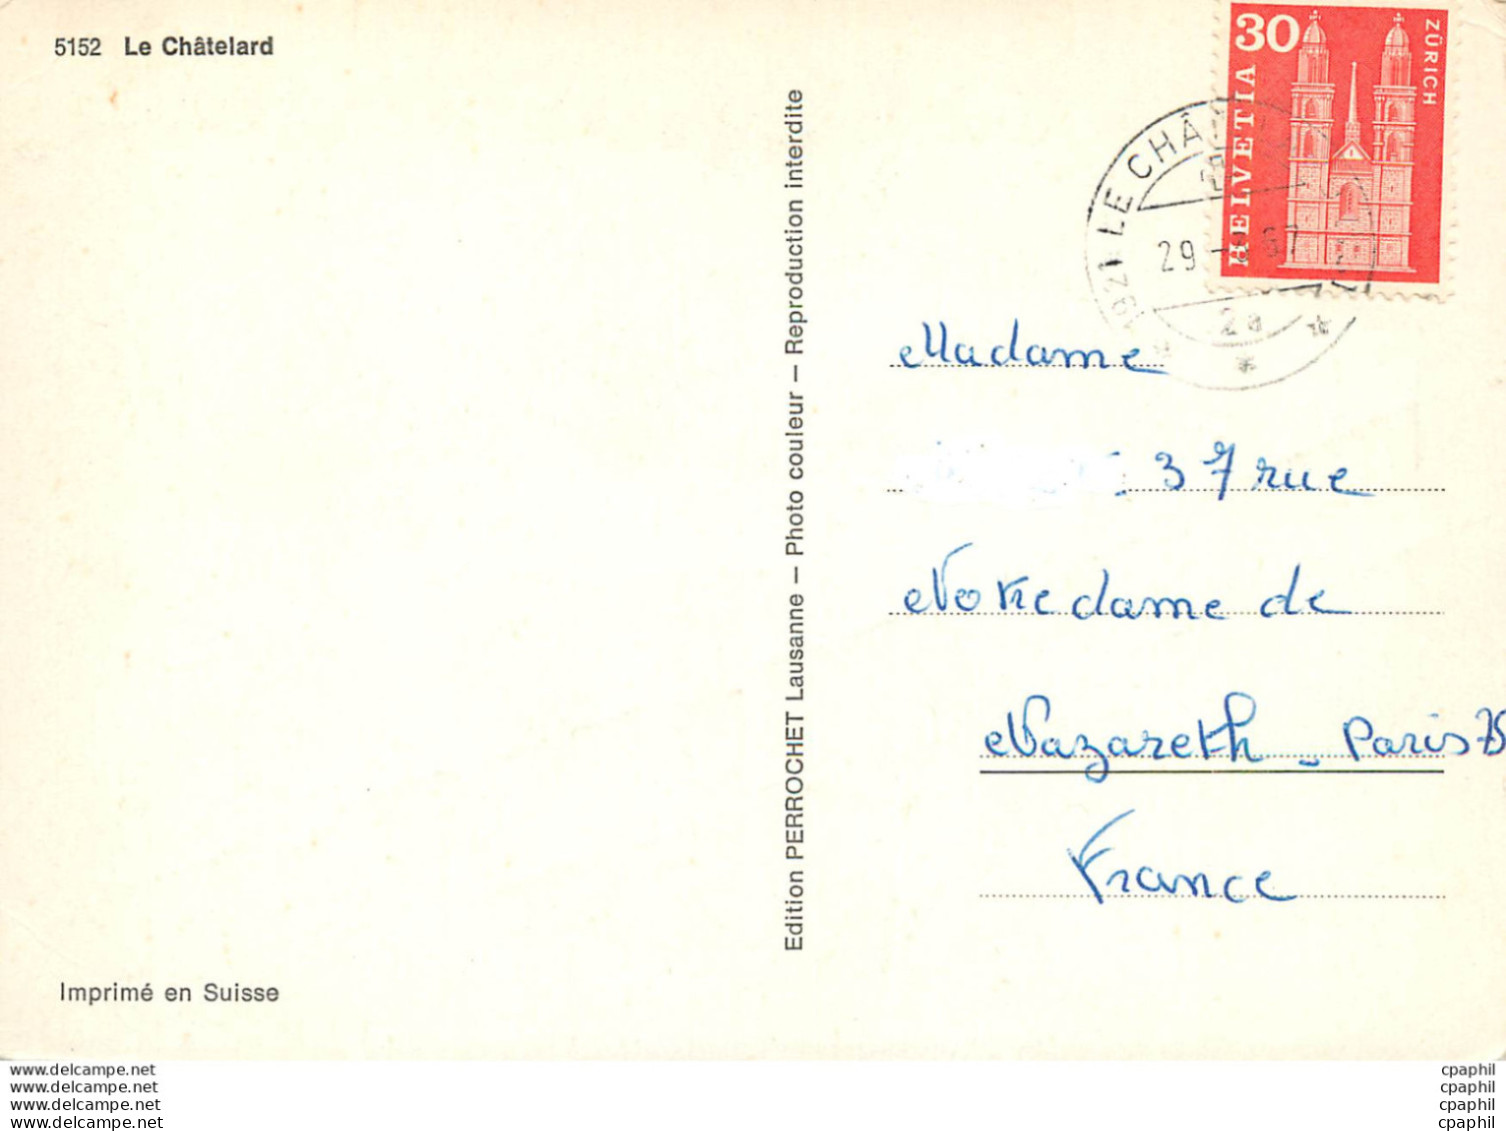 5152 Le Châtelard
Edition PERROCHET Lausanne – Photo couleur – Reproduction interdite
30
ZÜRICH
HELVETIA
1921 LE CHÂ
29
2a
Madame
37 rue
Notre dame de
Nazareth - Paris 75
France
Imprimé en Suisse
www.delcampe.net
www.delcampe.net
www.delcampe.net
www.delcampe.net
cpaphil
cpaphil
cpaphil
cpaphil